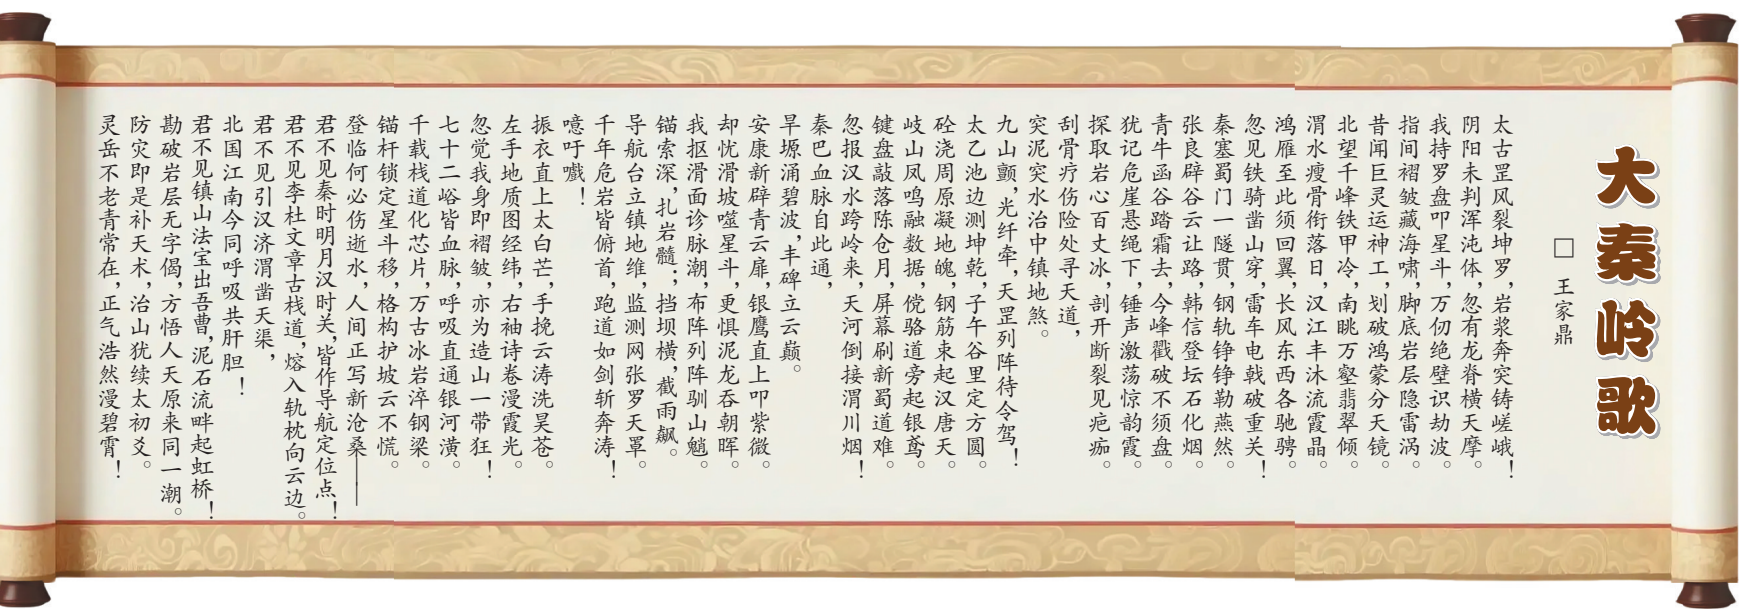 大秦岭歌
□ 王家鼎
太古罡风裂坤罗,岩浆奔突铸嵯峨!
阴阳未判浑沌体,忽有龙脊横天摩。
我持罗盘叩星斗,万仞绝壁识劫波。
指间褶皱藏海啸,脚底岩层隐雷涡。
昔闻巨灵运神工,划破鸿蒙分天镜。
北望千峰铁甲冷,南眺万壑翡翠倾。
渭水瘦骨衔落日,汉江丰沐流霞晶。
鸿雁至此须回翼,长风东西各驰骋。
忽见铁骑凿山穿,雷车电戟破重关!
秦塞蜀门一隧贯,钢轨铮铮勒燕然。
张良辟谷云让路,韩信登坛石化烟。
青牛函谷踏霜去,今峰戳破不须盘。
犹记危崖悬绳下,锤声激荡惊韵霞。
探取岩心百丈冰,剖开断裂见疤痂。
刮骨疗伤险处寻天道,
突泥突水治中镇地煞。
九山颤,光纤牵,天罡列阵待令驾!
太乙池边测坤乾,子午谷里定方圆。
砼浇周原凝地魄,钢筋束起汉唐天。
岐山凤鸣融数据,傥骆道旁起银鸢。
键盘敲落陈仓月,屏幕刷新蜀道难。
忽报汉水跨岭来,天河倒接渭川烟!
秦巴血脉自此通,
旱塬涌碧波,丰碑立云巅。
安康新辟青云扉,银鹰直上叩紫微。
却忧滑坡噬星斗,更惧泥龙吞朝晖。
我抠滑面诊脉潮,布阵列阵驯山魈。
锚索深,扎岩髓;挡坝横,截雨飙。
导航台立镇地维,监测网张罗天罩。
千年危岩皆俯首,跑道如剑斩奔涛!
噫吁戲!
振衣直上太白芒,手挽云涛洗昊苍。
左手地质图经纬,右袖诗卷漫霞光。
忽觉我身即褶皱,亦为造山一带狂!
七十二峪皆血脉,呼吸直通银河潢。
千载栈道化芯片,万古冰岩淬钢梁。
锚杆锁定星斗移,格构护坡云不慌。
登临何必伤逝水,人间正写新沧桑——
君不见秦时明月汉时关,皆作导航定位点!
君不见李杜文章古栈道,熔入轨枕向云边。
君不见引汉济渭凿天渠,
北国江南今同呼吸共肝胆!
君不见镇山法宝出吾曹,泥石流畔起虹桥!
勘破岩层无字偈,方悟人天原来同一潮。
防灾即是补天术,治山犹续太初爻。
灵岳不老青常在,正气浩然漫碧霄!